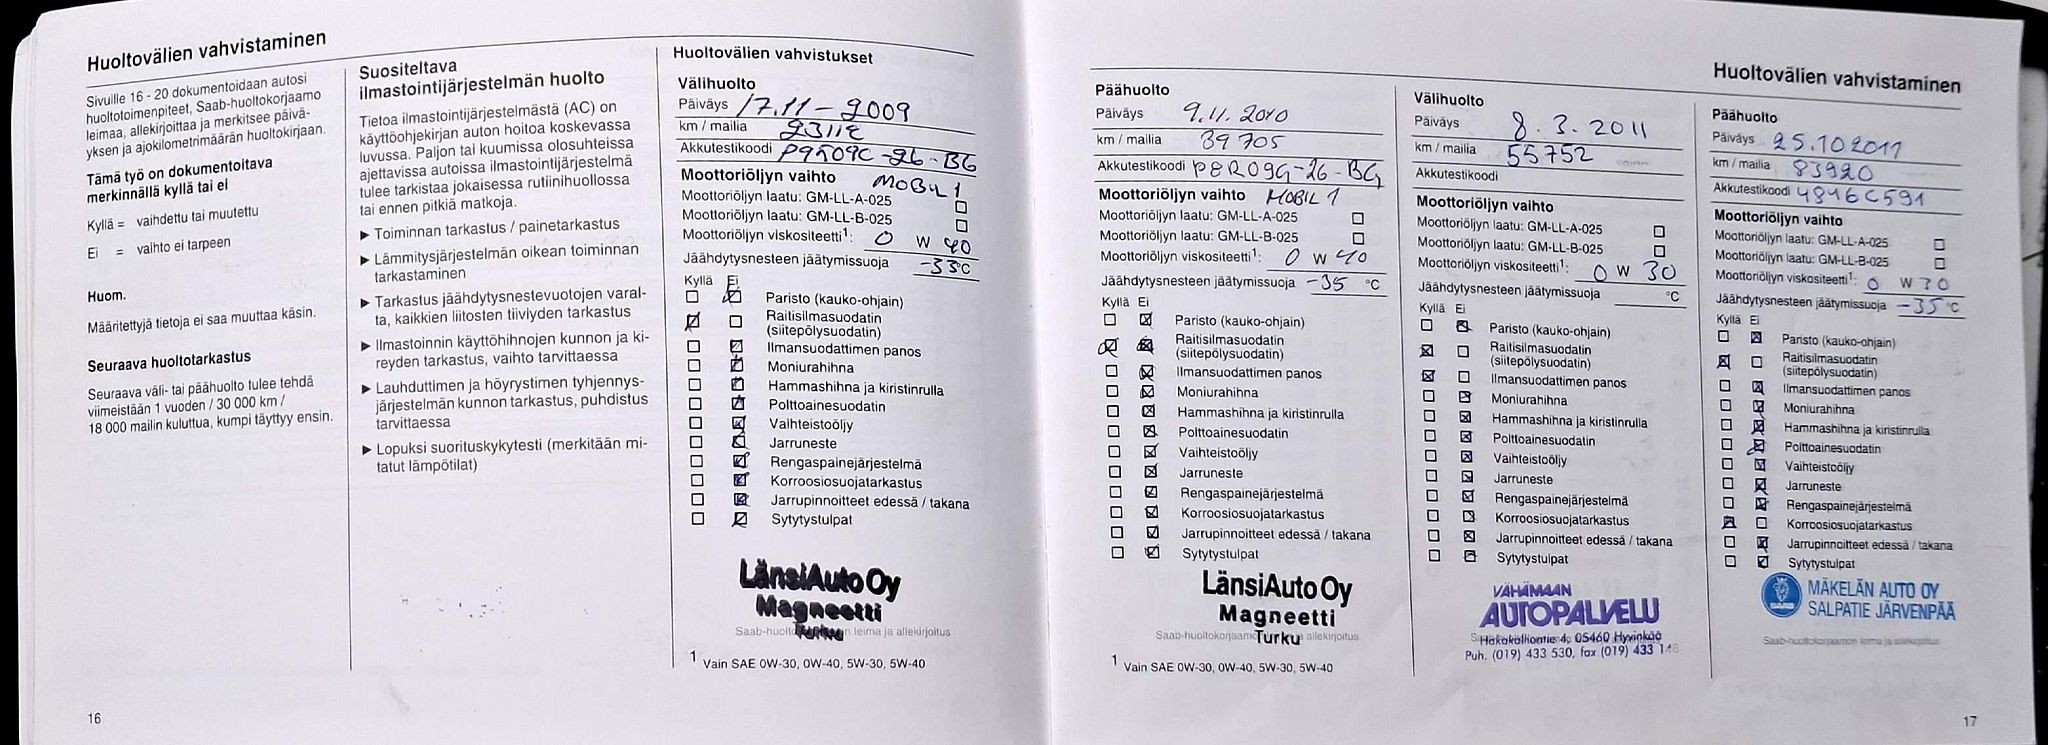 Huoltovälien vahvistaminen
Sivuille 16 - 20 dokumentoidaan autosi
huoltotoimenpiteet, Saab-huoltokorjaamo
leimaa, allekirjoittaa ja merkitsee päivä-
yksen ja ajokilometrimäärän huoltokirjaan.
Tämä työ on dokumentoitava
merkinnällä kyllä tai ei
Kyllä = vaihdettu tai muutettu
Ei = vaihto ei tarpeen
Huom.
Määritettyjä tietoja ei saa muuttaa käsin.
Seuraava huoltotarkastus
Seuraava väli- tai päähuolto tulee tehdä
viimeistään 1 vuoden / 30 000 km /
18 000 mailin kuluttua, kumpi täyttyy ensin.
16
Suositeltava
ilmastointijärjestelmän huolto
Tietoa ilmastointijärjestelmästä (AC) on
käyttöohjekirjan auton hoitoa koskevassa
luvussa. Paljon tai kuumissa olosuhteissa
ajettavissa autoissa ilmastointijärjestelmä
tulee tarkistaa jokaisessa rutiinihuollossa
tai ennen pitkiä matkoja.
► Toiminnan tarkastus / painetarkastus
► Lämmitysjärjestelmän oikean toiminnan
tarkastaminen
► Tarkastus jäähdytysnestevuotojen varal-
ta, kaikkien liitosten tiiviyden tarkastus
► Ilmastoinnin käyttöhihnojen kunnon ja ki-
reyden tarkastus, vaihto tarvittaessa
► Lauhduttimen ja höyrystimen tyhjennys-
järjestelmän kunnon tarkastus, puhdistus
tarvittaessa
► Lopuksi suorituskykytesti (merkitään mi-
tatut lämpötilat)
Huoltovälien vahvistukset
Välihuolto
Päiväys 17.11-2009
km / mailia
Akkutestikoodi
Moottoriöljyn vaihto MOBIL 1
Moottoriöljyn laatu: GM-LL-A-025
Moottoriöljyn laatu: GM-LL-B-025
Moottoriöljyn viskositeetti1: 0 W 40
Jäähdytysnesteen jäätymissuoja -33°C
Kyllä Ei
Paristo (kauko-ohjain)
Raitisilmasuodatin
(siitepölysuodatin)
Ilmansuodattimen panos
Moniurahihna
Hammashihna ja kiristinrulla
Polttoainesuodatin
Vaihteistoöljy
Jarruneste
Rengaspainejärjestelmä
Korroosiosuojatarkastus
Jarrupinnoitteet edessä / takana
Sytytystulpat
LänsiAuto Oy
Magneetti
Turku
Saab-huoltokorjaamon leima ja allekirjoitus
1 Vain SAE 0W-30, 0W-40, 5W-30, 5W-40
Huoltovälien vahvistaminen
Päähuolto
Päiväys 9.11.2010
km / mailia 39705
Akkutestikoodi P8R09G-26-BG
Moottoriöljyn vaihto MOBIL 1
Moottoriöljyn laatu: GM-LL-A-025
Moottoriöljyn laatu: GM-LL-B-025
Moottoriöljyn viskositeetti1: 0 W 40
Jäähdytysnesteen jäätymissuoja -35 °C
Kyllä Ei
Paristo (kauko-ohjain)
Raitisilmasuodatin
(siitepölysuodatin)
Ilmansuodattimen panos
Moniurahihna
Hammashihna ja kiristinrulla
Polttoainesuodatin
Vaihteistoöljy
Jarruneste
Rengaspainejärjestelmä
Korroosiosuojatarkastus
Jarrupinnoitteet edessä / takana
Sytytystulpat
LänsiAuto Oy
Magneetti
Turku
Saab-huoltokorjaamon leima ja allekirjoitus
1 Vain SAE 0W-30, 0W-40, 5W-30, 5W-40
Välihuolto
Päiväys 8.3.2011
km / mailia 55752
Akkutestikoodi
Moottoriöljyn vaihto
Moottoriöljyn laatu: GM-LL-A-025
Moottoriöljyn laatu: GM-LL-B-025
Moottoriöljyn viskositeetti1: 0 W 30
Jäähdytysnesteen jäätymissuoja °C
Kyllä Ei
Paristo (kauko-ohjain)
Raitisilmasuodatin
(siitepölysuodatin)
Ilmansuodattimen panos
Moniurahihna
Hammashihna ja kiristinrulla
Polttoainesuodatin
Vaihteistoöljy
Jarruneste
Rengaspainejärjestelmä
Korroosiosuojatarkastus
Jarrupinnoitteet edessä / takana
Sytytystulpat
VÄHÄMAAN
AUTOPALVELU
Hakakalliontie 4, 05460 Hyvinkää
Puh. (019) 433 530, fax (019) 433
Päähuolto
Päiväys 25.102011
km / mailia 83920
Akkutestikoodi 4846C591
Moottoriöljyn vaihto
Moottoriöljyn laatu: GM-LL-A-025
Moottoriöljyn laatu: GM-LL-B-025
Moottoriöljyn viskositeetti1: 0 W 30
Jäähdytysnesteen jäätymissuoja -35°C
Kyllä Ei
Paristo (kauko-ohjain)
Raitisilmasuodatin
(siitepölysuodatin)
Ilmansuodattimen panos
Moniurahihna
Hammashihna ja kiristinrulla
Polttoainesuodatin
Vaihteistoöljy
Jarruneste
Rengaspainejärjestelmä
Korroosiosuojatarkastus
Jarrupinnoitteet edessä / takana
Sytytystulpat
MÄKELÄN AUTO OY
SALPATIE JÄRVENPÄÄ
Saab-huoltokorjaamon leima ja allekirjoitus
17